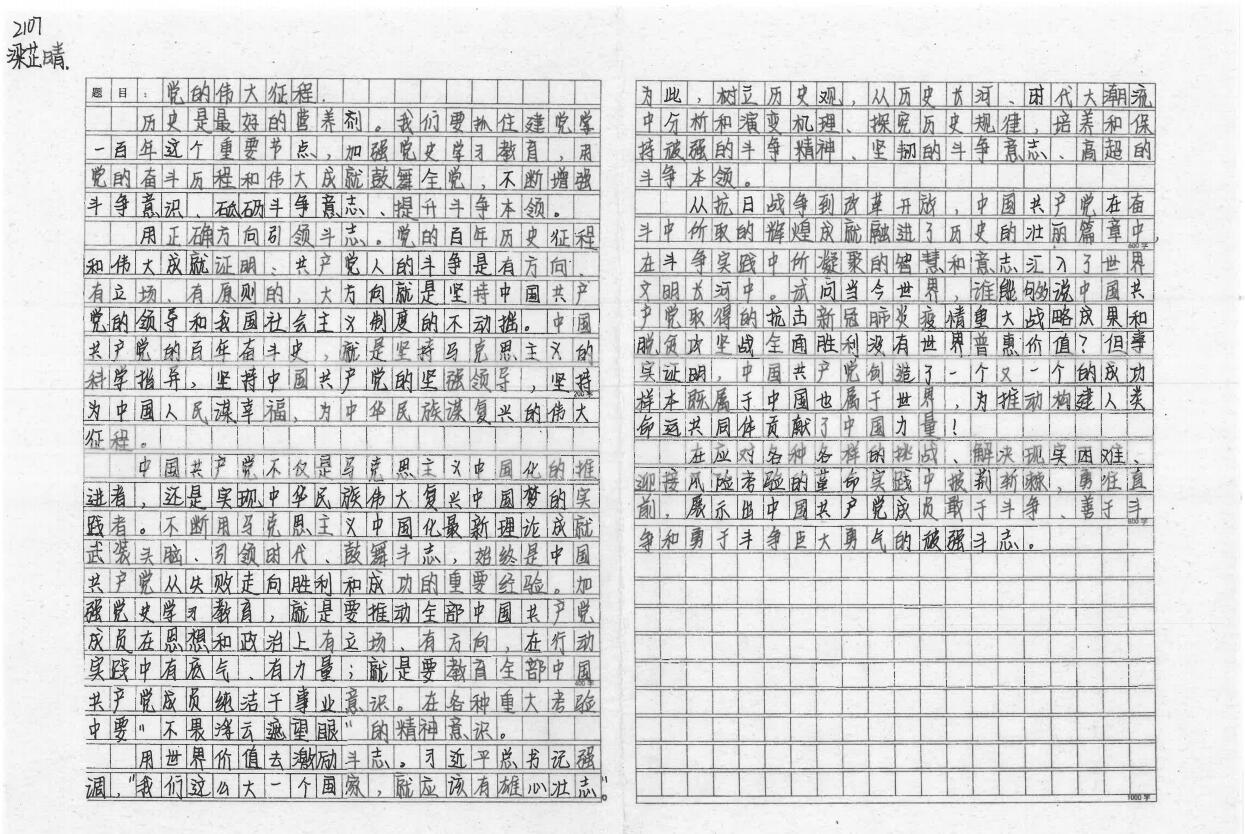 2107
梁芷晴.
题目: 党的伟大征程.
历史是最好的营养剂。我们要抓住建党学
一百年这个重要节点,加强党史学习教育,用
党的奋斗历程和伟大成就鼓舞全党,不断增强
斗争意识、砥砺斗争意志、提升斗争本领。
用正确方向引领斗志。党的百年历史征程
和伟大成就证明、共产党人的斗争是有方向、
有立场、有原则的,大方向就是坚持中国共产
党的领导和我国社会主义制度的不动摇。中国
共产党的百年奋斗史,就是坚持马克思主义的
科学指导,坚持中国共产党的坚强领导,坚持
200字
为中国人民谋幸福,为中华民族谋复兴的伟大
征程。
中国共产党不仅是马克思主义中国化的推
进者,还是实现中华民族伟大复兴中国梦的实
践者。不断用马克思主义中国化最新理论成就
武装头脑、引领时代、鼓舞斗志,始终是中国
共产党从失败走向胜利和成功的重要经验。加
强党史学习教育,就是要推动全部中国共产党
成员在思想和政治上有立场、有方向,在行动
实践中有底气、有力量;就是要教育全部中国
400字
共产党成员纯洁干事业意识。在各种重大考验
中要"不畏浮云遮望眼"的精神意识。
用世界价值去激励斗志。习近平总书记强
调,"我们这么大一个国家,就应该有雄心壮志"。
为此,树立历史观,从历史长河、时代大潮流
中分析和演变机理、探究历史规律,培养和保
持顽强的斗争精神、坚韧的斗争意志、高超的
斗争本领。
从抗日战争到改革开放,中国共产党在奋
斗中所取的辉煌成就融进了历史的壮丽篇章中,
600字
在斗争实践中所凝聚的智慧和意志汇入了世界
文明长河中。试问当今世界,谁能够说中国共
产党取得的抗击新冠肺炎疫情重大战略成果和
脱贫攻坚战全面胜利没有世界普惠价值?但事
实证明,中国共产党创造了一个又一个的成功
样本既属于中国也属于世界,为推动构建人类
命运共同体贡献了中国力量!
在应对各种各样的挑战、解决现实困难、
迎接风险考验的革命实践中披荆斩棘,勇往直
前,展示出中国共产党成员敢于斗争、善于斗
800字
争和勇于斗争巨大勇气的顽强斗志。
1000字